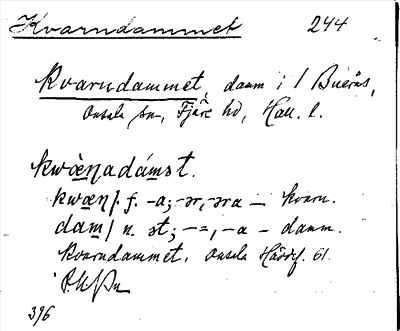 Kvarndammet 244
Kvarndammet, damm i / Buerås,
Onsala sn, Fjäre hd, Hall. l.
kwæ̀ṇadámst.
kwæṇ/ f. -a; -ər, -əra – kvarn.
dam/ n. st; -=, -a – damm.
Kvarndammet. Onsala Hdskf. 61.
396